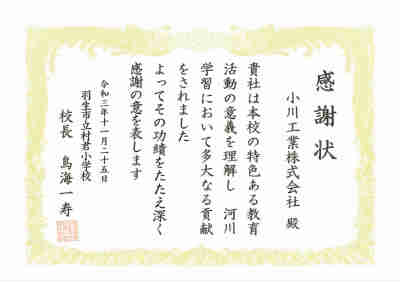 感謝状
小川工業株式会社 殿
貴社は本校の特色ある教育
活動の意義を理解し 河川
学習において多大なる貢献
をされました
よってその功績をたたえ深く
感謝の意を表します
令和三年十一月二十五日
羽生市立村君小学校
校長 鳥海一寿